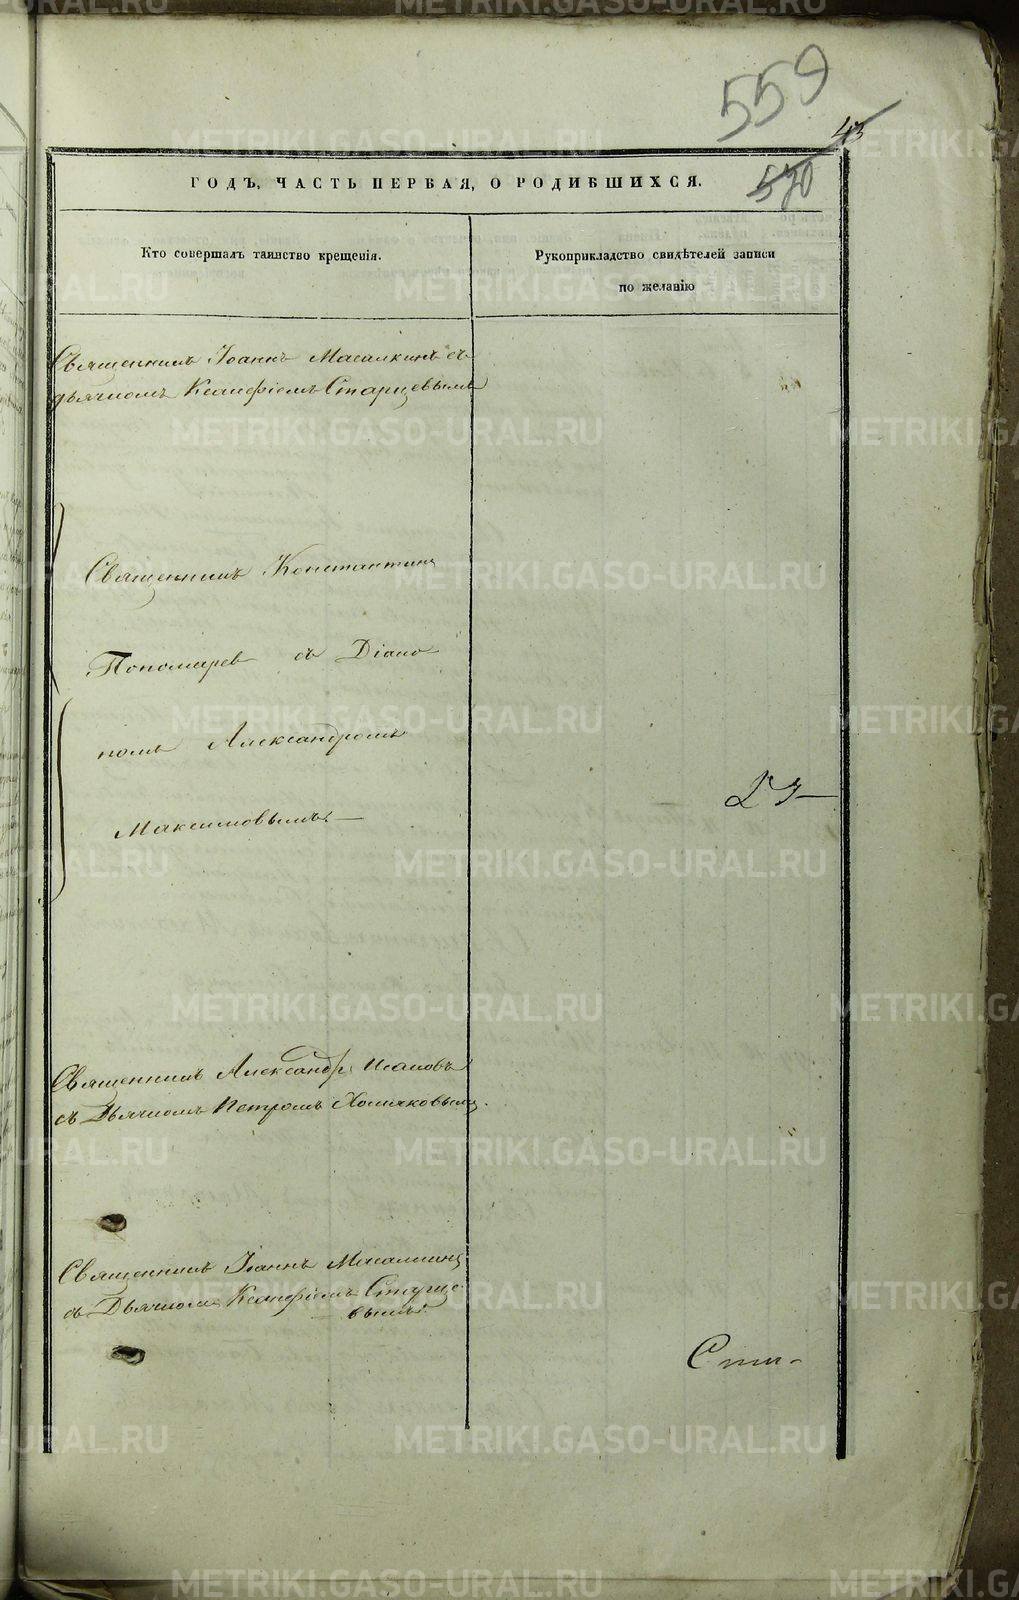 559
43
570
ГОДЪ, ЧАСТЬ ПЕРВАЯ, О РОДИВШИХСЯ.
Кто совершалъ таинство крещенія.
Рукоприкладство свидѣтелей записи
по желанію
Священникъ Іоаннъ Масалкинъ съ
дьячкомъ Ксанфіемъ Старцевымъ
Священникъ Константинъ
Пономарев съ Діако
номъ Александромъ
Максимовымъ.
Священникъ Александръ Исаковъ
съ Дьячкомъ Петромъ Хомяковымъ.
Священникъ Іоаннъ Масалкинъ
съ Дьячкомъ Ксанфіемъ Старце
вымъ.
METRIKI.GASO-URAL.RU